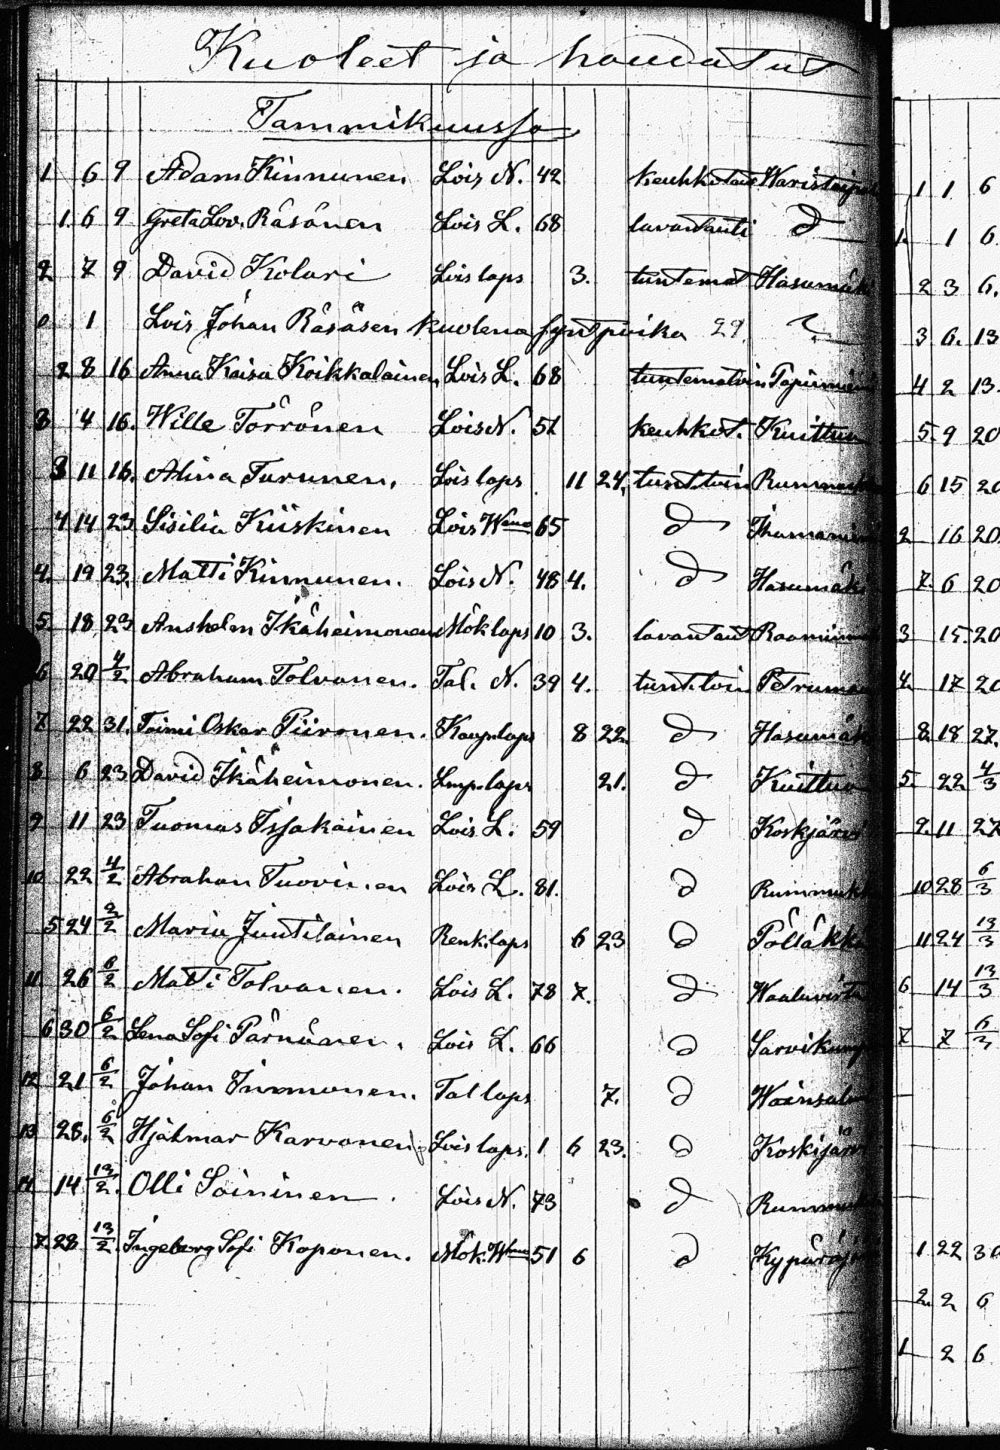 Kuoleet ja haudatut
Tammikuussa
1 6 9 Adam Kinnunen Lois N. 42 keuhkotau
1. 6 9 Greta Lov. Räsänen Lois L. 68 lavantauti d
2 7 9 David Kolari Lois laps 3. tuntemat Hasumäk
0 1 Lois Johan Räsäsen kuolena synt poika 29.
2 8 16 Anna Kaisa Koikkalainen Lois L. 68 tuntematoin
3 4 16. Wille Törrönen Lois N. 51 keuhkot. Kuittua
3 11 16. Alina Turunen. Lois laps 11 24. tunt.toin
4 14 23 Sisilia Kiiskinen Lois W 65 d
4. 19 23. Matti Kinnunen. Lois N. 48 4. d Hasumäk
5. 18 23 Anshelm Ikäheimonen Mök laps 10 3. lavantaut
6 20 4/2 Abraham Tolvanen. Tal. N. 39 4. tunt.toin Petruma
7 22 31. Toimi Oskar Piironen. Kaup laps 8 22. d Hasumäk
8 6 23 David Ikäheimonen. Lmp. laps 21. d Kuittua
9 11 23 Tuomas Issakainen Lois L. 59 d Koskjärv
10 22 4/2 Abraham Tuovinen Lois L. 81. d Rummukk
5 24 2/2 Maria Juutilainen Renk. laps 6 23 d Pölläkkä
11 26 6/2 Matti Tolvanen. Lois L. 78 7. d Waaluvirta
6 30 6/2 Lena Sofi Pärnänen. Lois L. 66 d Sarvikump
12 21 6/2 Johan Immonen. Tal laps 7. d
13 28. 6/2 Hjalmar Karvonen Lois laps. 1 6 23. d Koskijärv
14 14 13/2. Olli Soininen Lois N. 73 d Rummu
7. 28 13/2 Ingeborg Sofi Koponen. Mök. W 51 6 d Kypäräj
1 1 6
1. 1 6.
2 3 6.
3 6. 13
4 2 13.
5. 9 20
6 15 20
2 16 20.
7. 6 20
3 15. 20
4. 17 20
8. 18 27.
5. 22 4/3
9. 11 27
10 28 6/3
11 24 13/3
6 14 13/3
7 7 6/3
1 22 30
2. 2 6
1 2 6